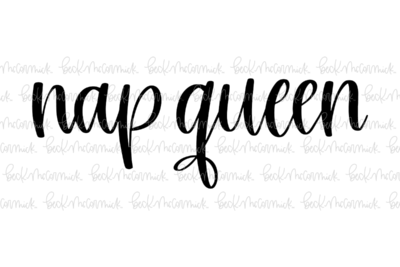 nap queen